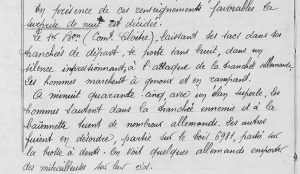 En présence de ces renseignements favorables la
surprise de nuit est décidée.
Le 4e Bon (Comt Cloître), laissant ses sacs dans ses
tranchées de départ, se porte sans bruit, dans un
silence impressionnant, à l'attaque de la tranchée allemande
les hommes marchent à genoux et en rampant.
A minuit quarante cinq, avec un élan superbe, les
hommes sautent dans la tranchée ennemie et à la
baïonnette tuent de nombreux allemands. Les autres
fuient en désordre, partie sur le bois 5981, partie sur
la butte à dents. On voit quelques allemands emporter
des mitrailleuses sur leur dos.